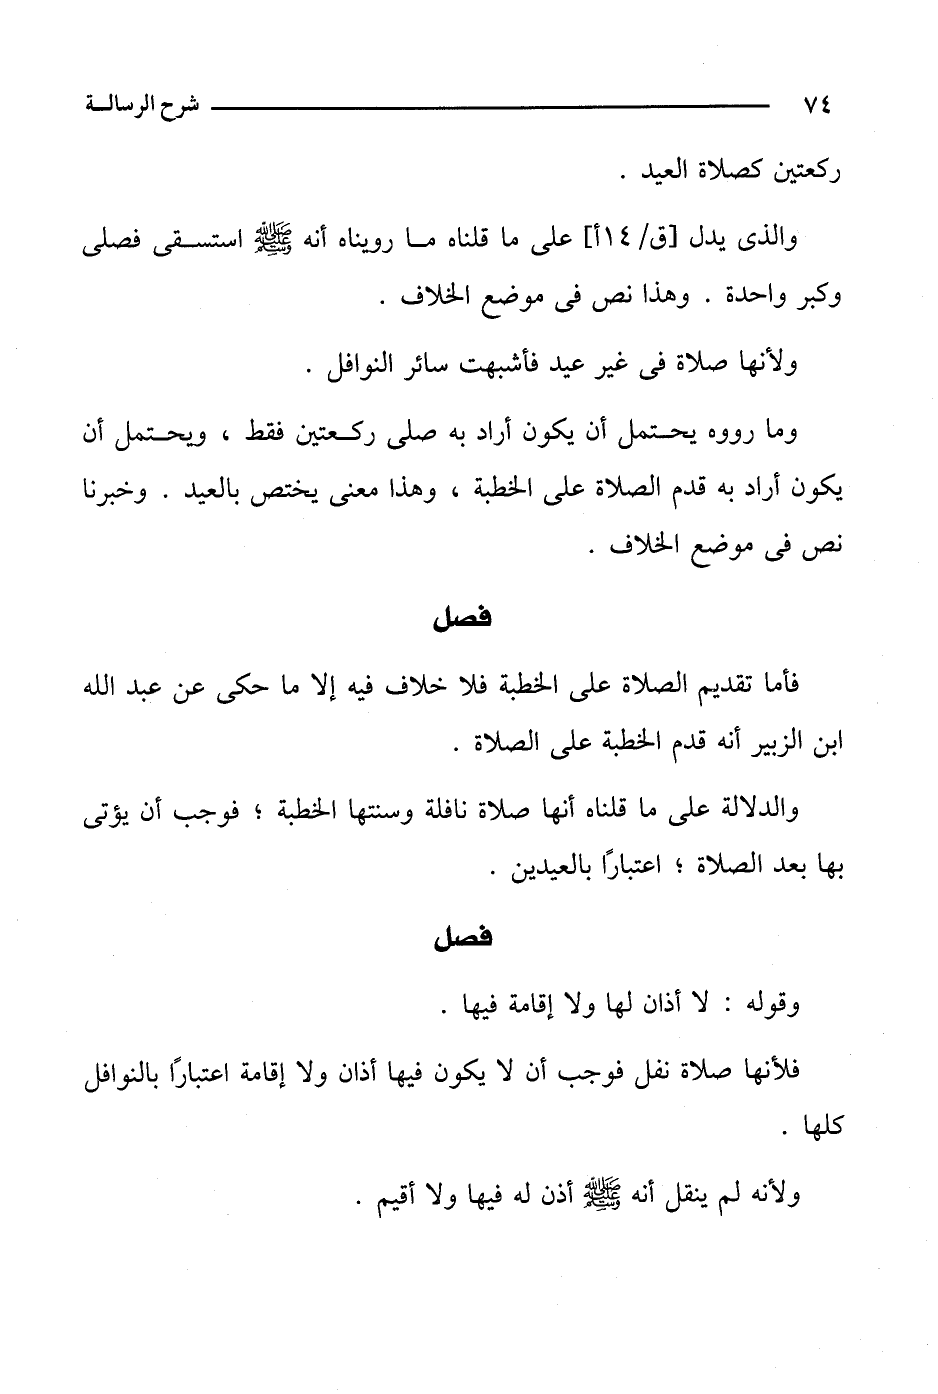 ٧٤ شرح الرسالة
ركعتين كصلاة العيد .
والذى يدل [ق/ ١٤أ] على ما قلناه ما رويناه أنه ﷺ استسقى فصلى
وكبر واحدة . وهذا نص فى موضع الخلاف .
ولأنها صلاة فى غير عيد فأشبهت سائر النوافل .
وما رووه يحتمل أن يكون أراد به صلى ركعتين فقط ، ويحتمل أن
يكون أراد به قدم الصلاة على الخطبة ، وهذا معنى يختص بالعيد . وخبرنا
نص فى موضع الخلاف .
فصل
فأما تقديم الصلاة على الخطبة فلا خلاف فيه إلا ما حكى عن عبد الله
ابن الزبير أنه قدم الخطبة على الصلاة .
والدلالة على ما قلناه أنها صلاة نافلة وسنتها الخطبة ؛ فوجب أن يؤتى
بها بعد الصلاة ؛ اعتبارًا بالعيدين .
فصل
وقوله : لا أذان لها ولا إقامة فيها .
فلأنها صلاة نفل فوجب أن لا يكون فيها أذان ولا إقامة اعتبارًا بالنوافل
كلها .
ولأنه لم ينقل أنه ﷺ أذن له فيها ولا أقيم .